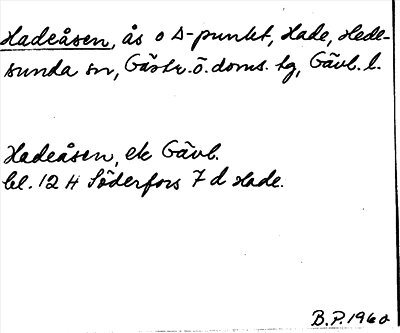 Hadeåsen, ås o Δ-punkt, Hade, Hede-
sunda sn, Gästr. ö. doms. tg, Gävl. l.
Hadeåsen, ek Gävl.
bl. 12 H Söderfors 7 d Hade.
B.P. 1960